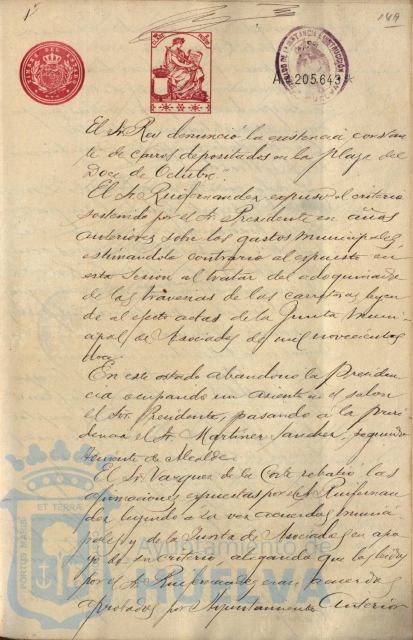 1ª
A 205.643*
El Sr. Rey denunció la existencia constan-
te de carros depositados en la plaza del
Doce de Octubre.
El Sr. Ruifernandez expuso el criterio
sostenido por el Sr. Presidente en años
anteriores sobre los gastos municipales,
estimándolo contrario al expuesto en
esta sesión al tratar del adoquinado
de las travesias de las carreteras leyen-
do al efecto actas de la Junta muni-
cipal de Asociados de mil novecientos
doce.
En este estado abandono la Presiden-
cia ocupando un asiento en el salon
el Sr. Presidente, pasando á la presi-
dencia el Sr. Martinez Sanchez, segundo
teniente de Alcalde.
El Sr. Vazquez de la Corte rebatió las
afirmaciones expuestas por el Sr. Ruifernan-
dez leyendo á la vez acuerdos munici-
pales y de la Junta de Asociados en apo-
yo de su criterio, alegando que los leidos
por el Sr. Ruifernandez eran acuerdos
aprobados por Ayuntamientos anterior
PORTUS MARIS
ET TERRAE
Ayuntamiento de
HUELVA